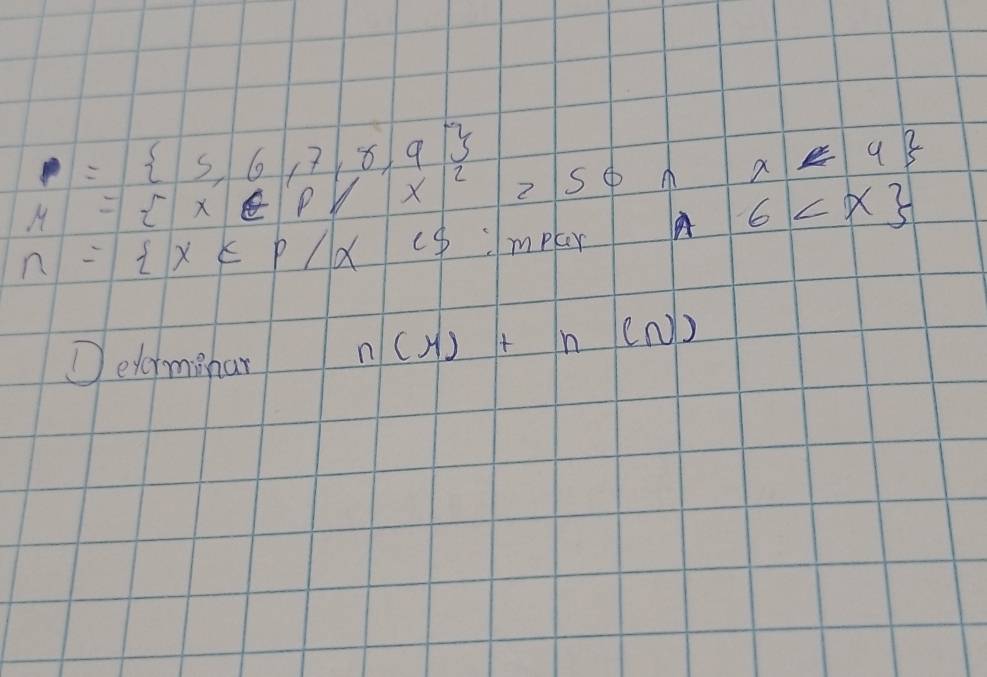 P = { 5, 6, 7, 8, 9 }
M = { x ∈ P / x² > 50 ∧ x < 9 }
n = { x ∈ P / x es impar ∧ 6 < x }
Determinar n (M) + n (N)